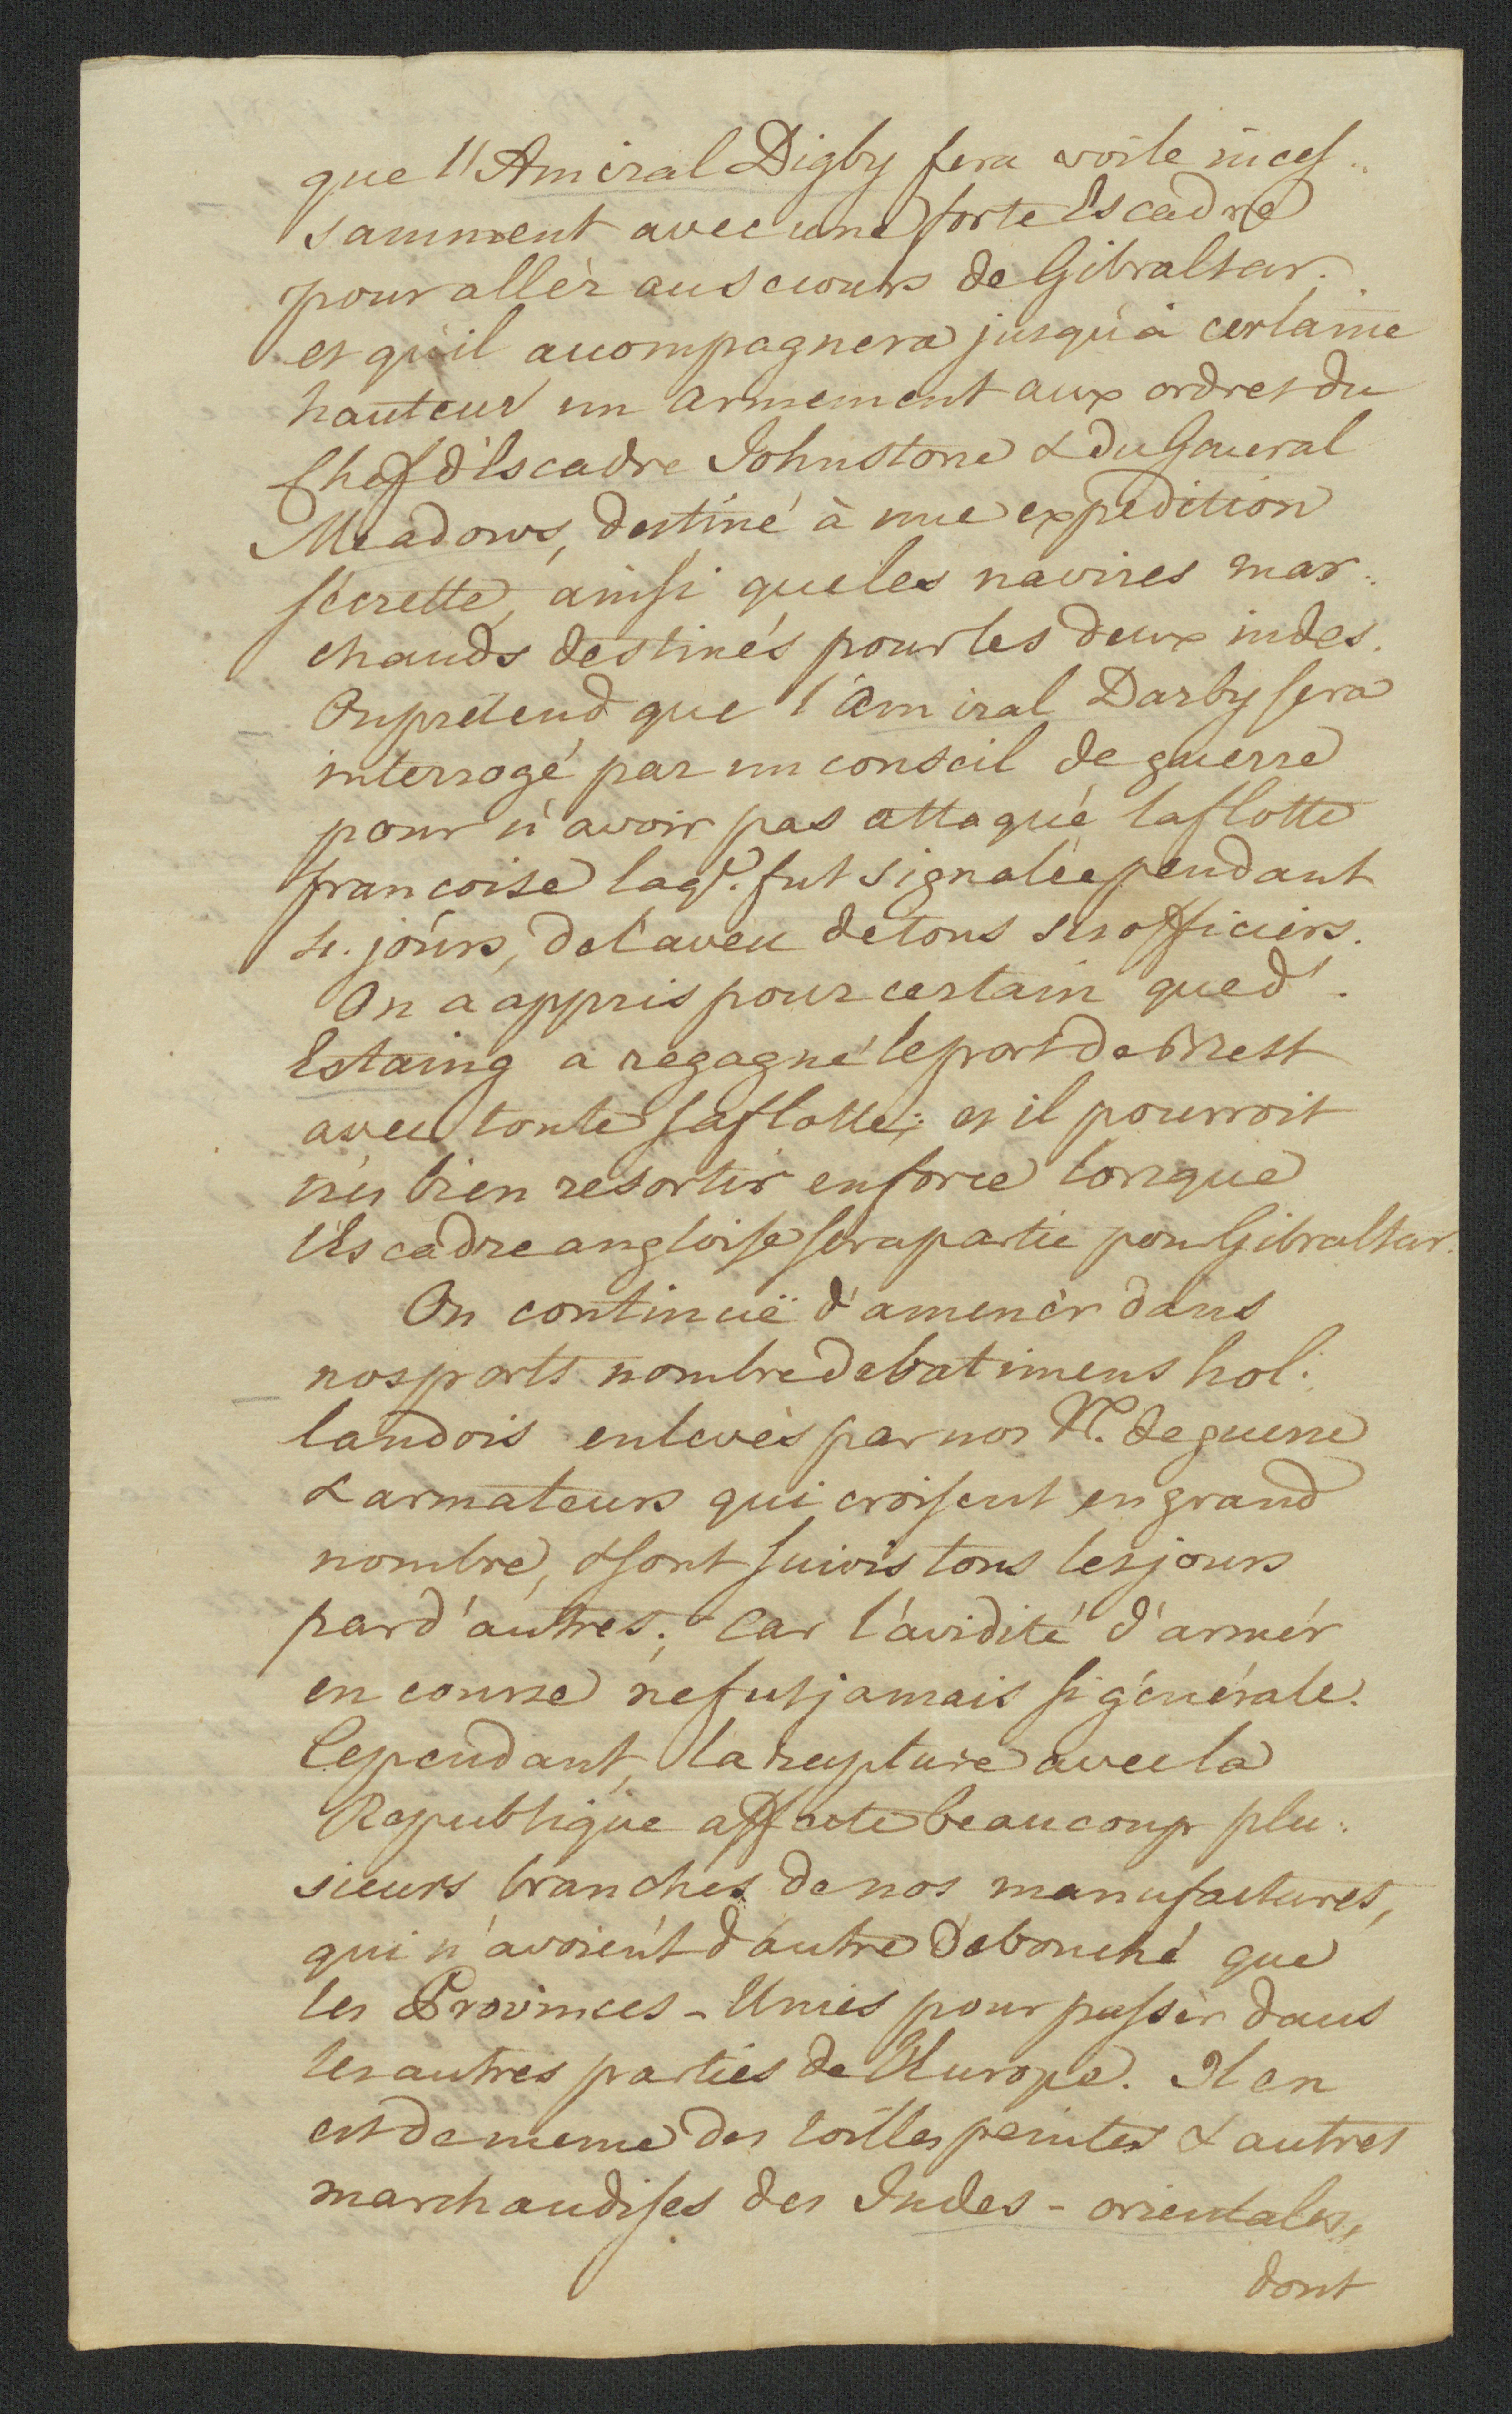 que l'Amiral Digby fera voile inces..
samment avec une forte Escadre
pour allèr au scecours de Gibraltar.
et qu'il acompagnera jusqu'à certaine
hauteur un armement aux ordres du
Chef d'Escadre Johnstone & du General
Meadows, destiné à une expedition
sécrette, ainsi que les navires mar..
chands destinés pour les deux indes.
On prétend que l'Amiral Darby sera
interrogé par un conseil de guerre
pour n'avoir pas attaqué la flotte
francoise laqe. fut signalée pendant
4. jours, de l'aveu de tous ses officiers.
On a appris pour certain que d'.
Estaing a regagné le port de Brest
avec toute sa flotte; et il pourroit
très bien resortir en force lorsque
l'Escadre angloise sera partie pour Gibraltar.
On continuë d'amenèr dans
nos ports nombre de batimens hol.
landois enlevès par nos Vx. de guerre
& armateurs qui croisent en grand
nombre, & sont suivis tous les jours
par d'autres; car l'avidité d'armér
en course ne fut jamais si générale.
Cependant, la rupture avec la
Republique affecte beaucoup plu.
sieurs branches de nos manufactures,
qui n'avoient d'autre debouché que
les Provinces-Unies pour passèr dans
les autres parties de l'Europe. Il en
est de meme des toilles peintes & autres
marchandises des Indes-orientales,
dont